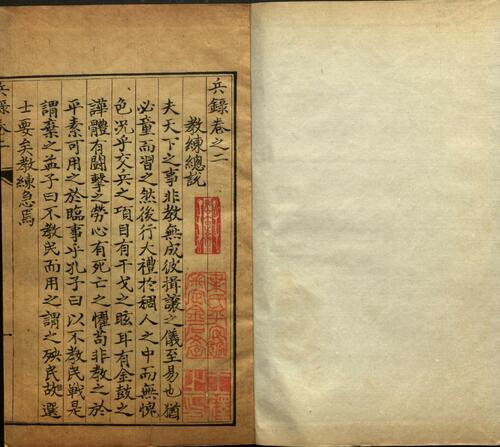 兵錄卷之二
教練總說
夫天下之事非教無成彼揖讓之儀至易也猶
必童而習之然後行大禮於稠人之中而無愧
色况乎交兵之項目有干戈之眩耳有金鼓之
譁體有鬪擊之勞心有死亡之懼苟非教之於
平素可用之於臨事乎孔子曰以不教民戰是
謂棄之孟子曰不教民而用之謂之殃民故選
士要矣教練急焉
兵錄卷二